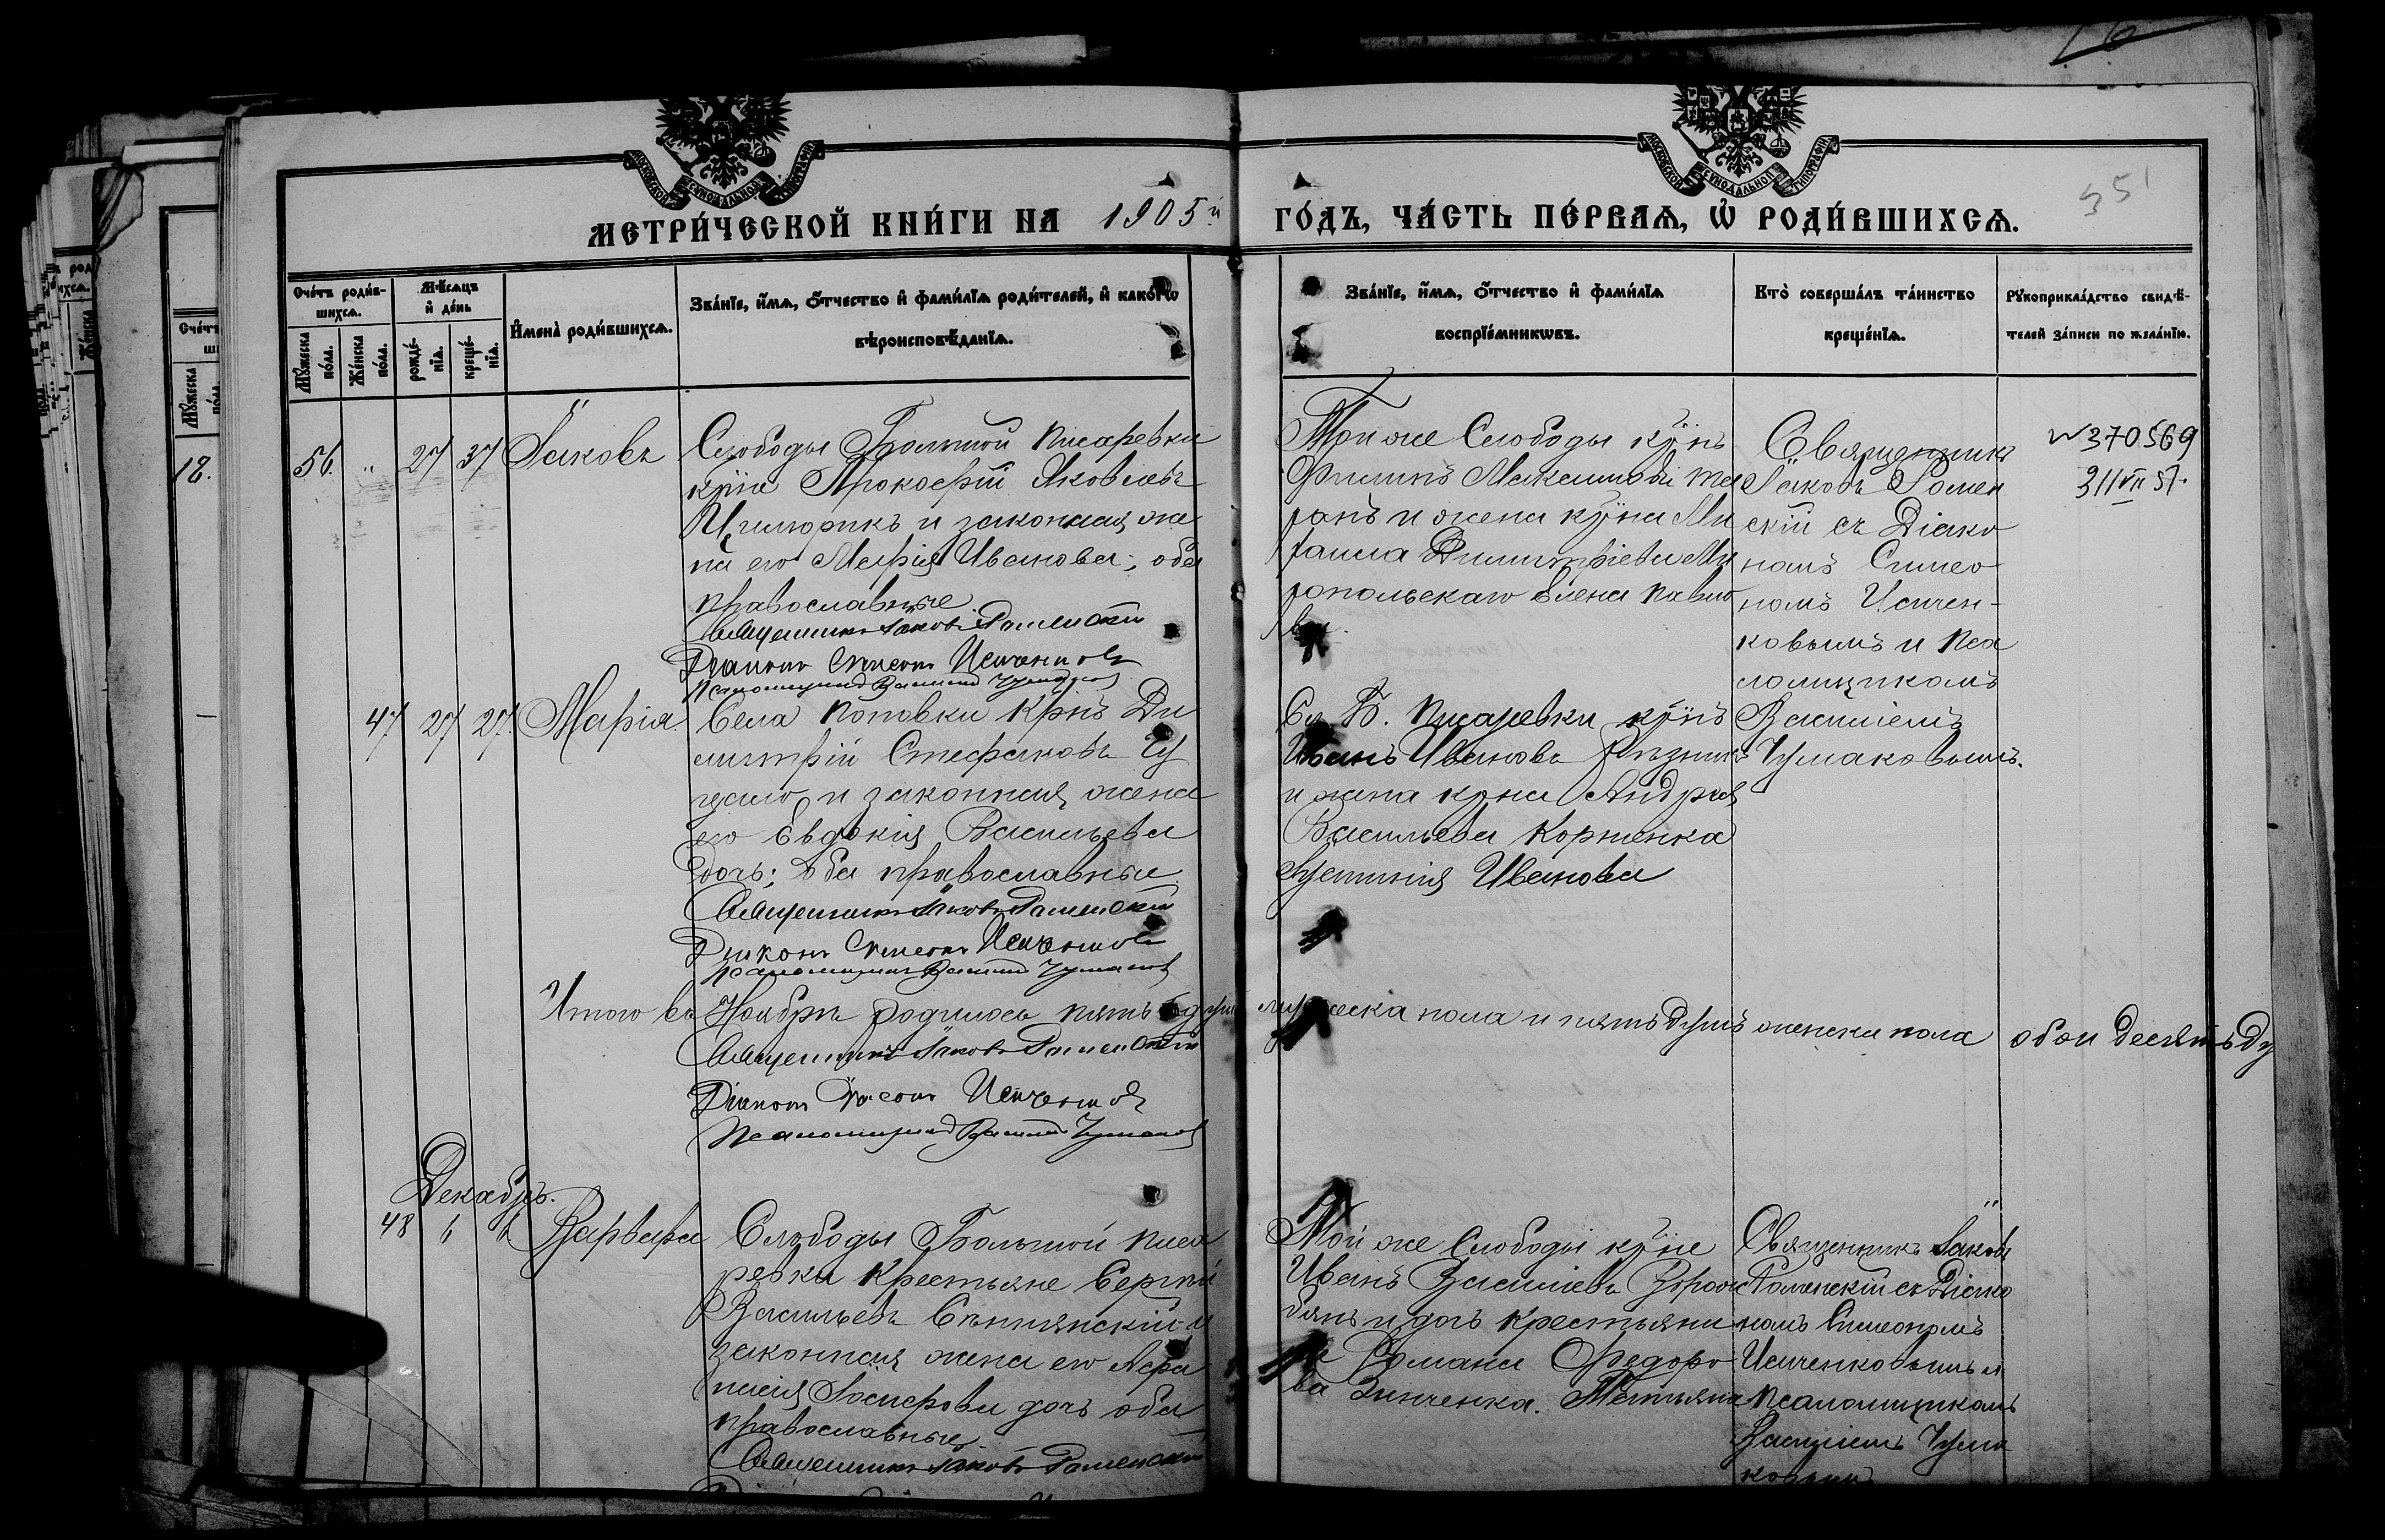 МОСКОВСКОЙ СѴНОДАЛЬНОЙ ТИПОГРАФІИ
МОСКОВСКОЙ СѴНОДАЛЬНОЙ ТИПОГРАФІИ
МЕТРИ́ЧЕСКОЙ КНИ́ГИ НА 1905й
ГО́ДЪ, ЧА́СТЬ ПЕ́РВАѦ, Ѡ҆ РОДИ́ВШИХСѦ.
351
Сче́тъ роди́в-
шихсѧ.
Мѣ́сѧцъ
и҆ де́нь
Мꙋ́жеска
по́ла.
Же́нска
по́ла.
рожде́-
нїѧ.
креще́-
нїѧ.
И҆мена̀ роди́вшихсѧ.
Зва́нїе, и҆́мѧ, ѻ҆́тчество и҆ фами́лїѧ роди́телей, и҆ како́гѡ
вѣроисповѣ́данїѧ.
Зва́нїе, и҆́мѧ, ѻ҆́тчество и҆ фами́лїѧ
воспрїе́мникѡвъ.
Кто̀ соверша́лъ та́инство
креще́нїѧ.
Рꙋкоприкла́дство свидѣ́-
телей за́писи по жела́нїю.
18.
56 " 27 37 Іаковъ
Слободы Большой Писаревки
крне Прокофій Яковлевъ
и законная же
на его Марія Иванова; оба
православные
Священникъ Іаковъ Роменскій
Діаконъ Симеонъ Исиченковъ
Псаломщикъ Василій Чумаковъ
Той же Слободы крнъ
Филиппъ
и жена крна Ми
хаила Димитріева Ми
ропольскаго Елена Павло
ва.
Священникъ
Іаковъ Ромен
скій съ Діако
номъ Симео
номъ Исичен-
ковымъ и пса
ломщикомъ
Василіемъ
Чумаковымъ.
№370569
311 VII 51.
47 27 27 Марія.
Села Поповки крнъ Ди
митрій Стефановъ
и законная жена
его Евдокія Васильева
дочь; оба православные
Священникъ Іаковъ Роменскій
Діаконъ Симеонъ Исиченковъ
Псаломщикъ Василій Чумаковъ
Сл. Б. Писаревки крнъ
Иванъ Ивановъ Рѣзникъ
и жена крна Андрея
Васильева Корніенка
Иванова
Итого въ Ноябрѣ родилось пять душъ мужеска пола и пять душъ женска пола обои десять ду
Священникъ Іаковъ Роменскій
Діаконъ Симеонъ Исиченковъ
Псаломщикъ Василій Чумаковъ
Декабрь.
48 1 6 Варвара
Слободы Большой Писа
ревки крестьяне Сергій
Васильевъ Сѣннянскій и
законная жена его Афа
насія Іосифова дочь оба
православные.
Священникъ Іаковъ Роменскій
Той же Слободы крне
Иванъ Василіевъ
и дочь крестьяни
на Романа Федоро
ва Зинченка. Татьяна
Священникъ Іаковъ
Роменскій съ Діако
номъ Симеономъ
Исиченковымъ и
псаломщикомъ
Василіемъ Чума
ковымъ